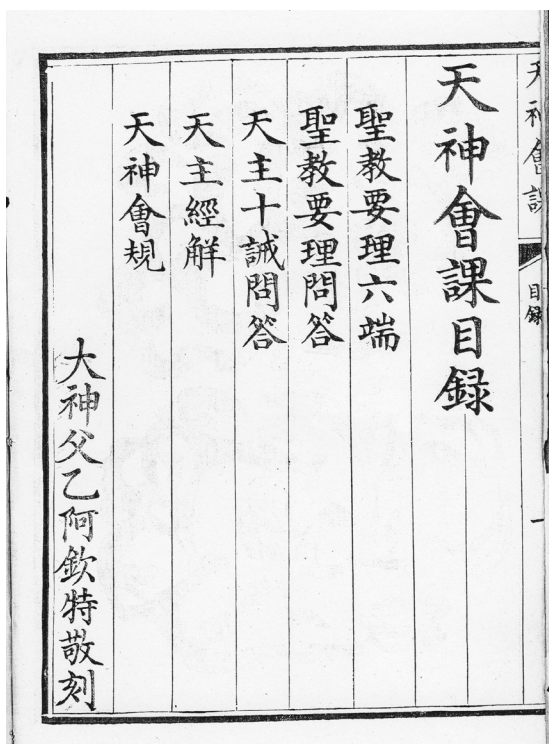 天神會課
目録
一
天神會課目録
聖教要理六端
聖教要理問答
天主十誡問答
天主經解
天神會規
大神父乙阿欽特敬刻